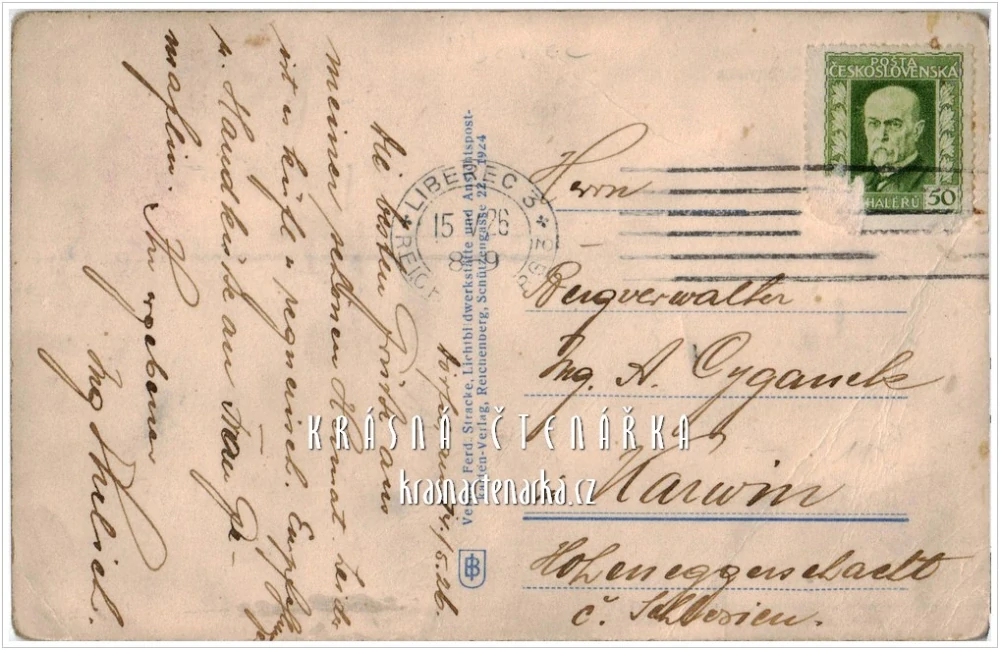 POŠTA
ČESKOSLOVENSKA
HALÉRŮ 50
LIBEREC 3
15 26
8 9
REICH
Herrn
Bergverwalter
Ing. A. Cyganek
in Karwin
Hoheneggerschacht
č. Schlesien.
Ferd. Stracke, Lichtbildwerkstätte und Ansichtspost-
karten-Verlag, Reichenberg, Schützengasse 22, 1924
14./5. 26
Die besten Grüße aus
meiner schönen Heimat. Leider
ist es kühl u regnerisch.
p. Handküsse an Frau Ge-
mahlin. Ihr ergebener
Ing
KRÁSNÁ ČTENÁŘKA
krasnactenarka.cz